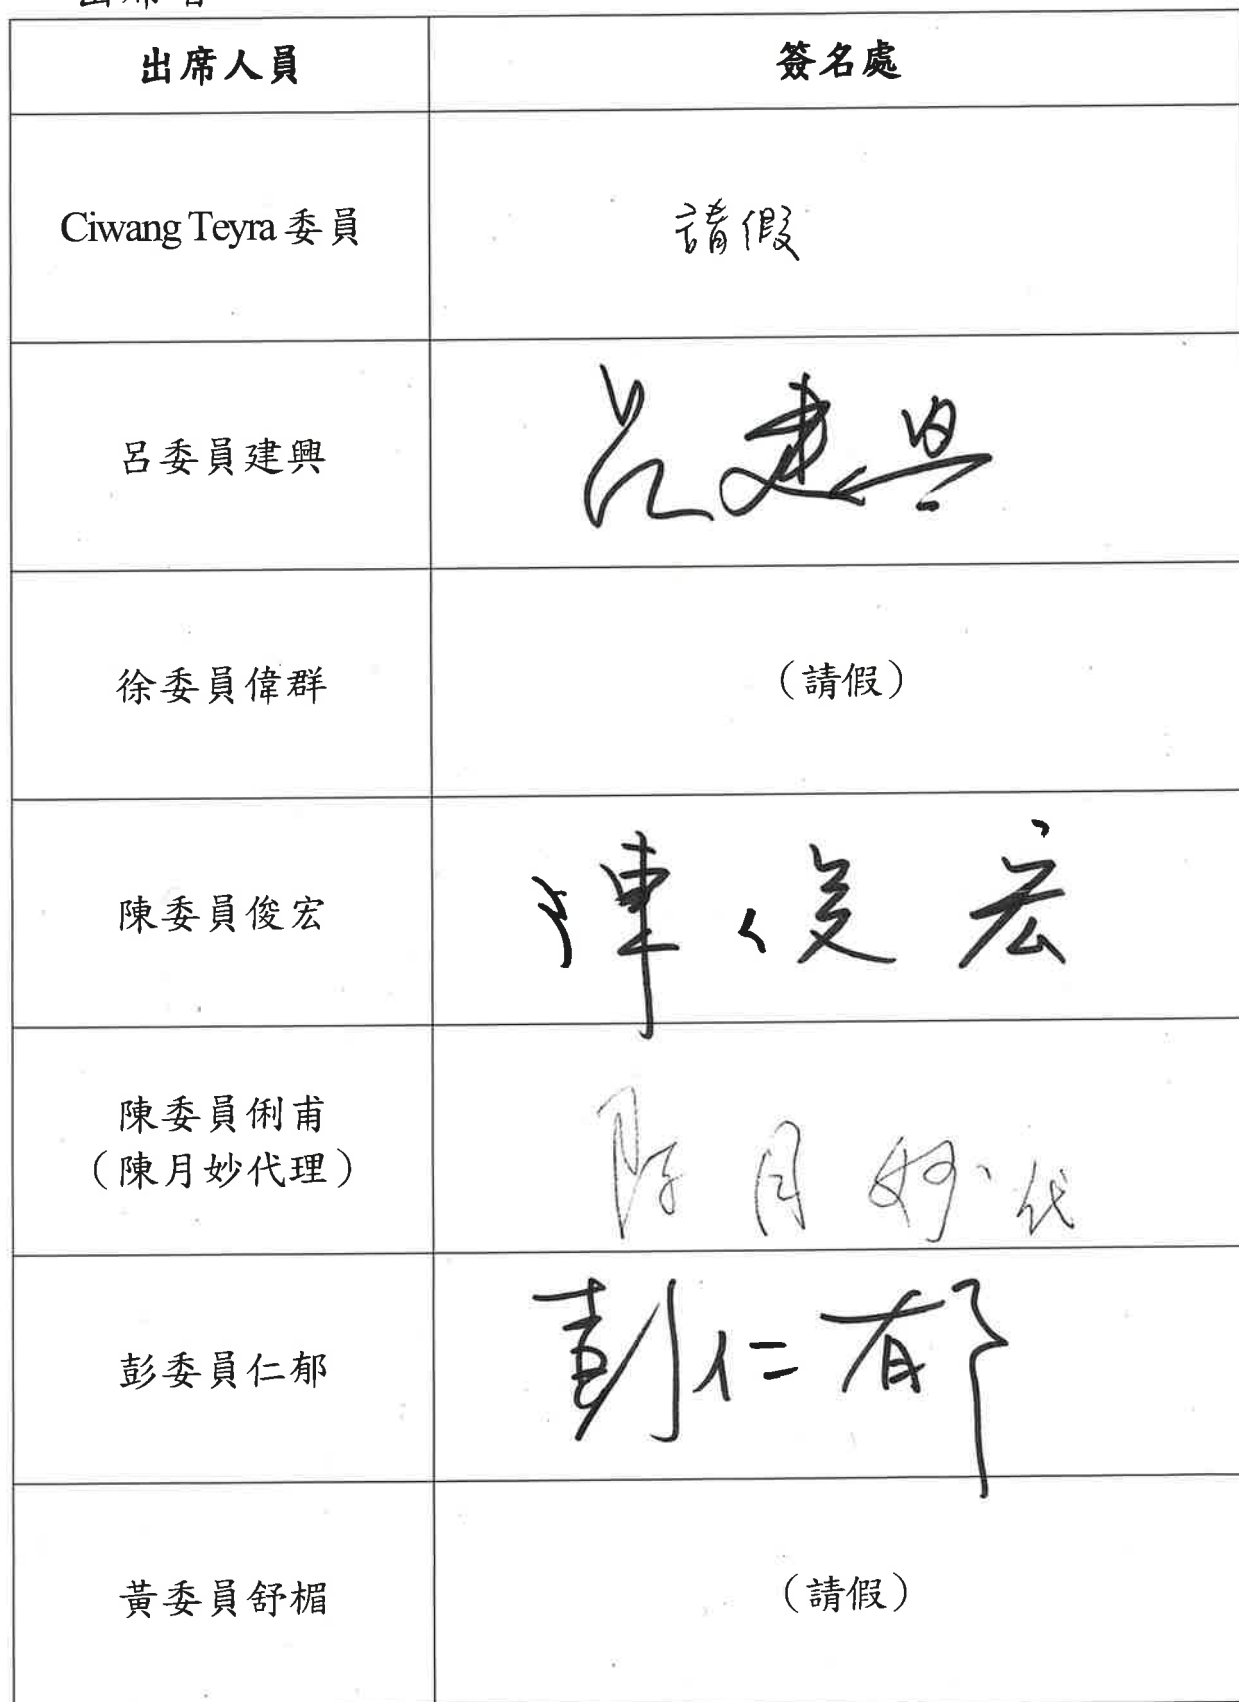 出席者
出席人員 簽名處
Ciwang Teyra 委員 請假
呂委員建興 呂建興
徐委員偉群 （請假）
陳委員俊宏 陳俊宏
陳委員俐甫
（陳月妙代理） 陳月妙代
彭委員仁郁 彭仁郁
黃委員舒楣 （請假）